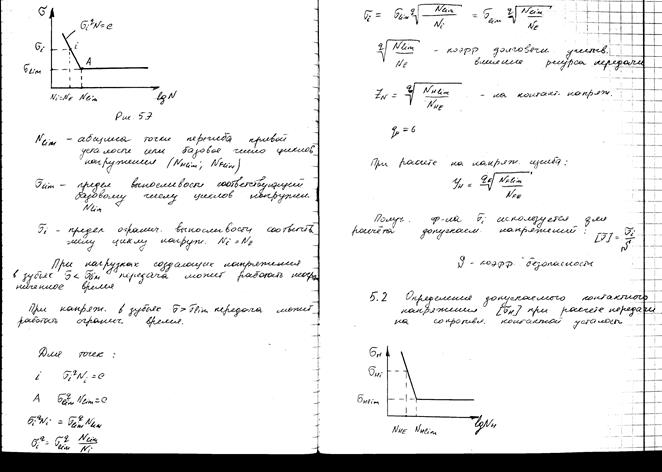 σ
σᵢ^q N = C
σᵢ
i
A
σlim
Nᵢ = N_E Nlim lg N
Рис 5.7
Nlim - абцисса точки перегиба кривой
усталости или базовое число циклов
нагружения (NHlim; NFlim)
σlim - предел выносливости соответствующий
базовому числу циклов нагружен.
Nlim
σᵢ - предел огранич. выносливости соответств.
циклу нагруж. Nᵢ = N_E
При нагрузках создающих напряжения
в зубьях σ < σlim передача может работать
время
При напряж. в зубьях σ > σlim передача может
работать огранич. время.
Для точек :
i σᵢ^q Nᵢ = C
A σlim^q Nlim = C
σᵢ^q Nᵢ = σlim^q Nlim
σᵢ^q = σlim^q Nlim/Nᵢ
σᵢ = σlim ^q√(Nlim/Nᵢ) = σlim ^q√(Nlim/N_E)
^q√(Nlim/N_E) - коэфф долговечн учитыв.
влияние ресурса передачи
Z_N = ^q√(N_Hlim/N_HE) - на контакт. напряж.
q = 6
При расчёте на напряж. изгиба:
^q√(N_Flim/N_FE)
Получ. ф-ла σᵢ используется для
расчёта допускаем. напряжений : [σ] = σᵢ/S
S - коэфф. безопасности
5.2 Определение допускаемого контактного
напряжения [σH] при расчёте передачи
на сопротивл. контактной усталости
σH
σHi
σHlim
N_HE N_Hlim lg N_H